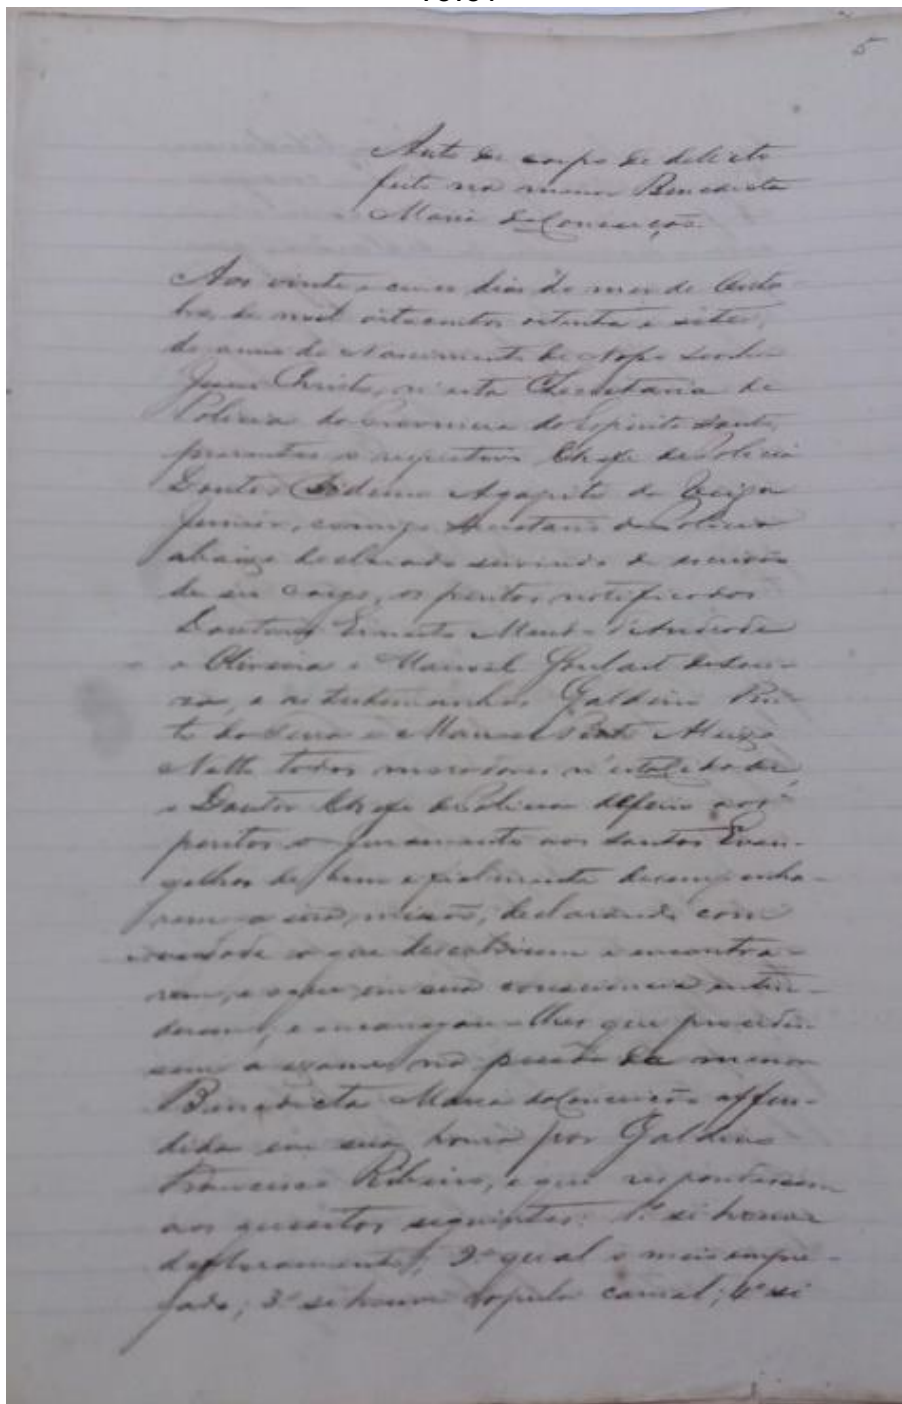 5
Auto de corpo de delicto
feito na menor Benedicta
Maria da Conceição.
Aos vinte e cinco dias do mez de Outu-
bro, de mil oitocentos oitenta e sete,
do anno do Nascimento de Nosso Senhor
Jesus Christo, n'esta Secretaria de
Policia da Provincia do Espirito Santo,
presentes o respectivo Chefe de Policia
Doutor Agapito da Veiga
Junior, comigo Secretario de Policia
abaixo declarado servindo de escrivão
de seu cargo, os peritos notificados
Doutores Ernesto Mendo d'Andrade
e Oliveira e Manoel Goulart de Sou-
za, e as testemunhas Galdino Pin-
to da Serra e Manoel Pinto Aleixo
Netto todos moradores n'esta Cidade,
o Doutor Chefe de Policia deferio aos
peritos o juramento aos Santos Evan-
gelhos de bem e fielmente desempenha-
rem a sua missão, declarando com
verdade o que descobrirem e encontra-
rem, e o que em sua consciencia enten-
derem; e encarregou-lhes que procedes-
sem a exame na pessoa da menor
Benedicta Maria da Conceição offen-
dida em sua honra por Galdino
Francisco Ribeiro, e que respondessem
aos quesitos seguintes: 1º si houve
defloramento; 2º qual o meio empre-
gado; 3º si houve copula carnal; 4º si